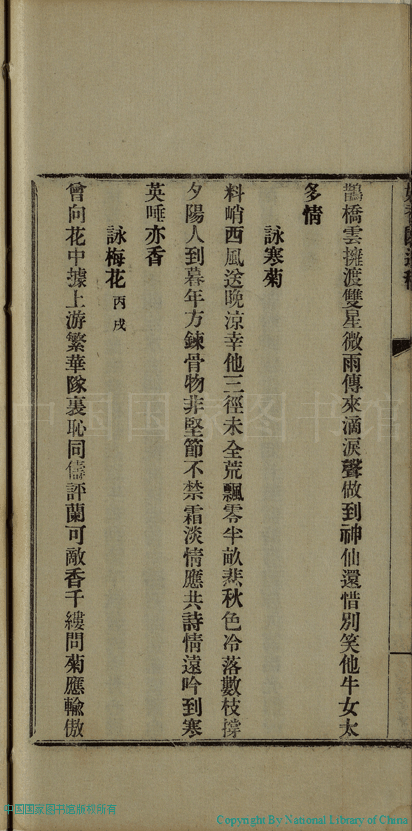 鵲橋雲擁渡雙星微雨傳來滴淚聲做到神仙還惜別笑他牛女太
多情
詠寒菊
料峭西風送晚涼幸他三徑未全荒飄零半畝燕秋色冷落數枝撐
夕陽人到暮年方鍊骨物非堅節不禁霜淡情應共詩情遠吟到寒
英唾亦香
詠梅花 丙戌
曾向花中據上游繁華隊裏恥同儔評蘭可敵香千縷問菊應輸傲
中国国家图书馆
中国国家图书馆版权所有
Copyright By National Library of China